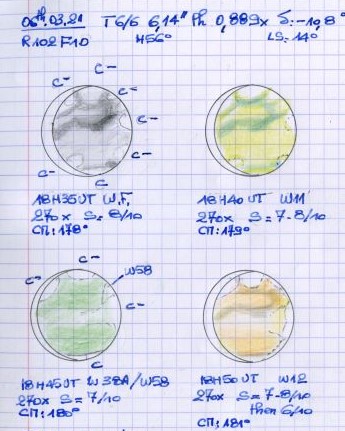 06th.03.21 T6/6 6,14" Ph 0,889x δ:-19,8°
R102F10 H56° LS:14°
C-
C- C-
C-
C- C-
C
18H35UT W.F. 18H40UT W11
270x S=8/10 270x S=7-8/10
CM:178° CM:179°
C- W58
C- C-
C
18H45UT W38A/W58 18H50UT W12
270x S=7/10 270x S=7-8/10
CM:180° then 6/10
CM:181°